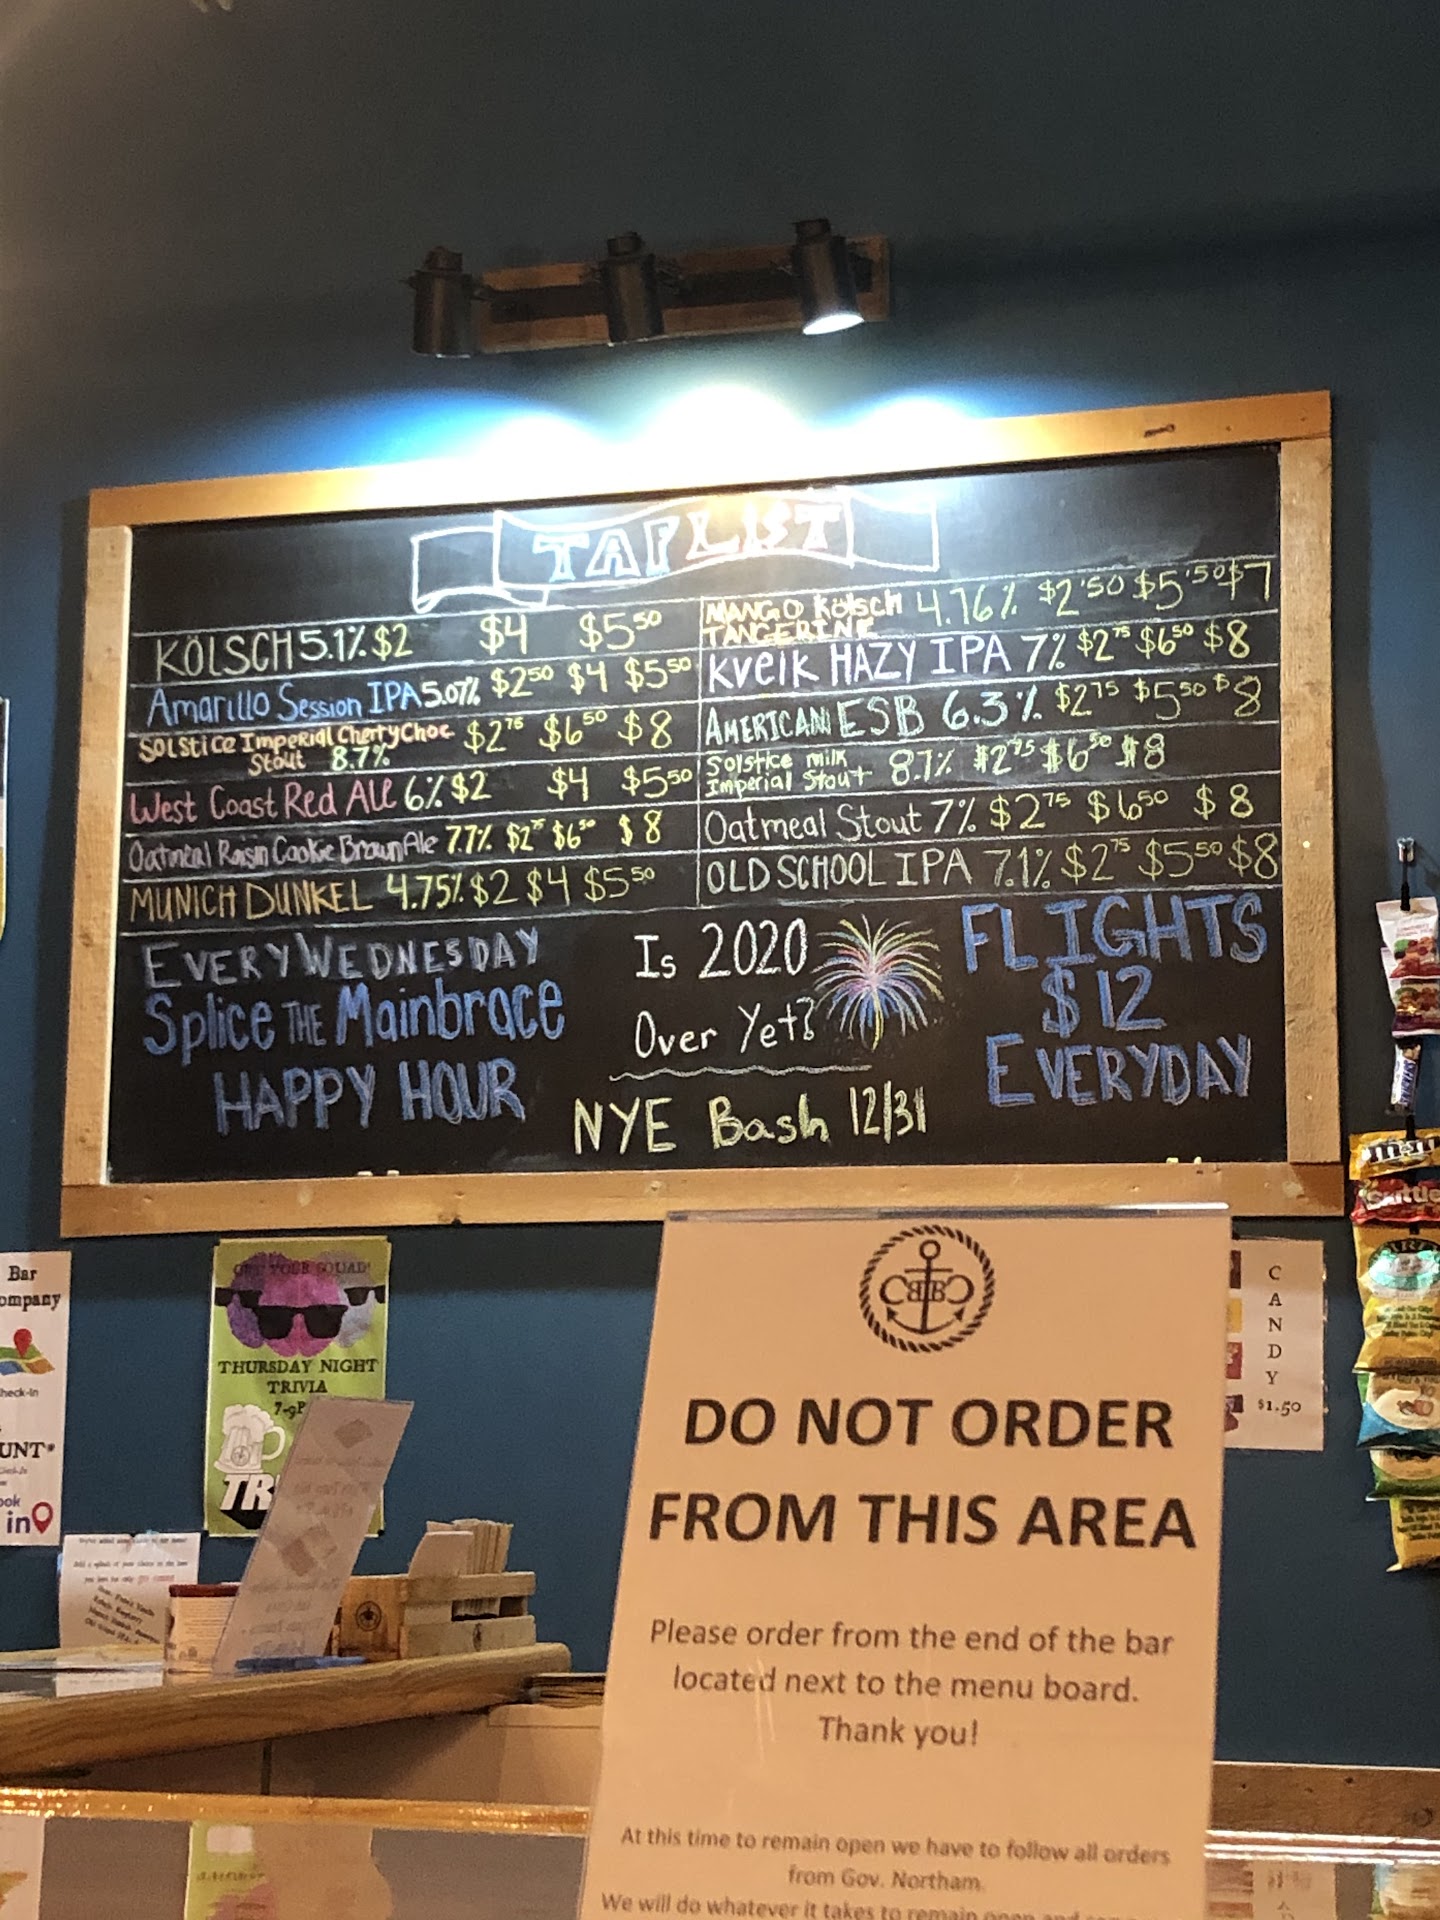 TAP LIST
KÖLSCH 5.1% $2 $4 $5.50
Amarillo Session IPA 5.07% $2.50 $4 $5.50
Solstice Imperial Cherry Choc
Stout 8.7% $2.75 $6.50 $8
West Coast Red Ale 6% $2 $4 $5.50
Oatmeal Raisin Cookie Brown Ale 7.7% $2.75 $6.50 $8
MUNICH DUNKEL 4.75% $2 $4 $5.50
MANGO Kölsch
TANGERINE 4.76% $2.50 $5.50 $7
Kveik HAZY IPA 7% $2.75 $6.50 $8
AMERICAN ESB 6.3% $2.75 $5.50 $8
Solstice milk
Imperial Stout 8.7% $2.75 $6.50 $8
Oatmeal Stout 7% $2.75 $6.50 $8
OLD SCHOOL IPA 7.1% $2.75 $5.50 $8
EVERY WEDNESDAY
Splice THE Mainbrace
HAPPY HOUR
Is 2020
Over Yet?
NYE Bash 12/31
FLIGHTS
$12
EVERYDAY
Bar
ompany
heck-In
UNT*
ook
in
GET YOUR SQUAD!
THURSDAY NIGHT
TRIVIA
7-9P
TR
CBBC
DO NOT ORDER
FROM THIS AREA
Please order from the end of the bar
located next to the menu board.
Thank you!
At this time to remain open we have to follow all orders
from Gov. Northam.
We will do whatever it takes to remain open and
CANDY
$1.50
m&m
Skittle